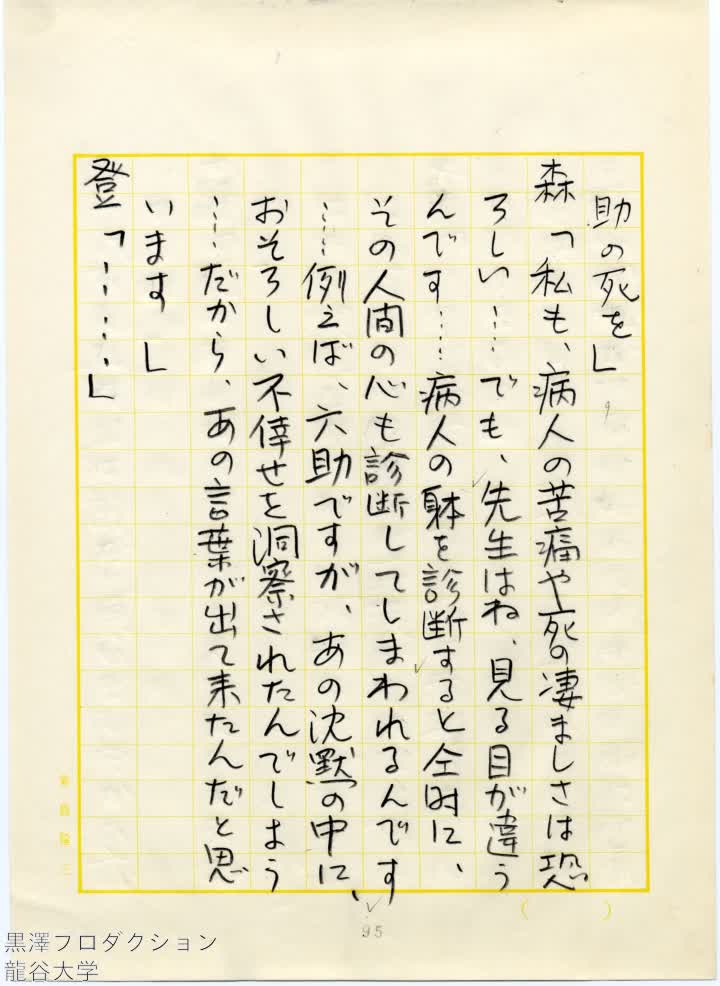 助の死を」
森「私も、病人の苦痛や死の凄ましさは恐
ろしい……でも、先生はね、見る目が違う
んです……病人の躰を診断すると仝時に、
その人間の心も診断してしまわれるんです
……例えば、六助ですが、あの沈黙の中に、
おそろしい不倖せを洞察されたんでしょう
……だから、あの言葉が出て来たんだと思
います」
登「………」
95
黒澤プロダクション
龍谷大学